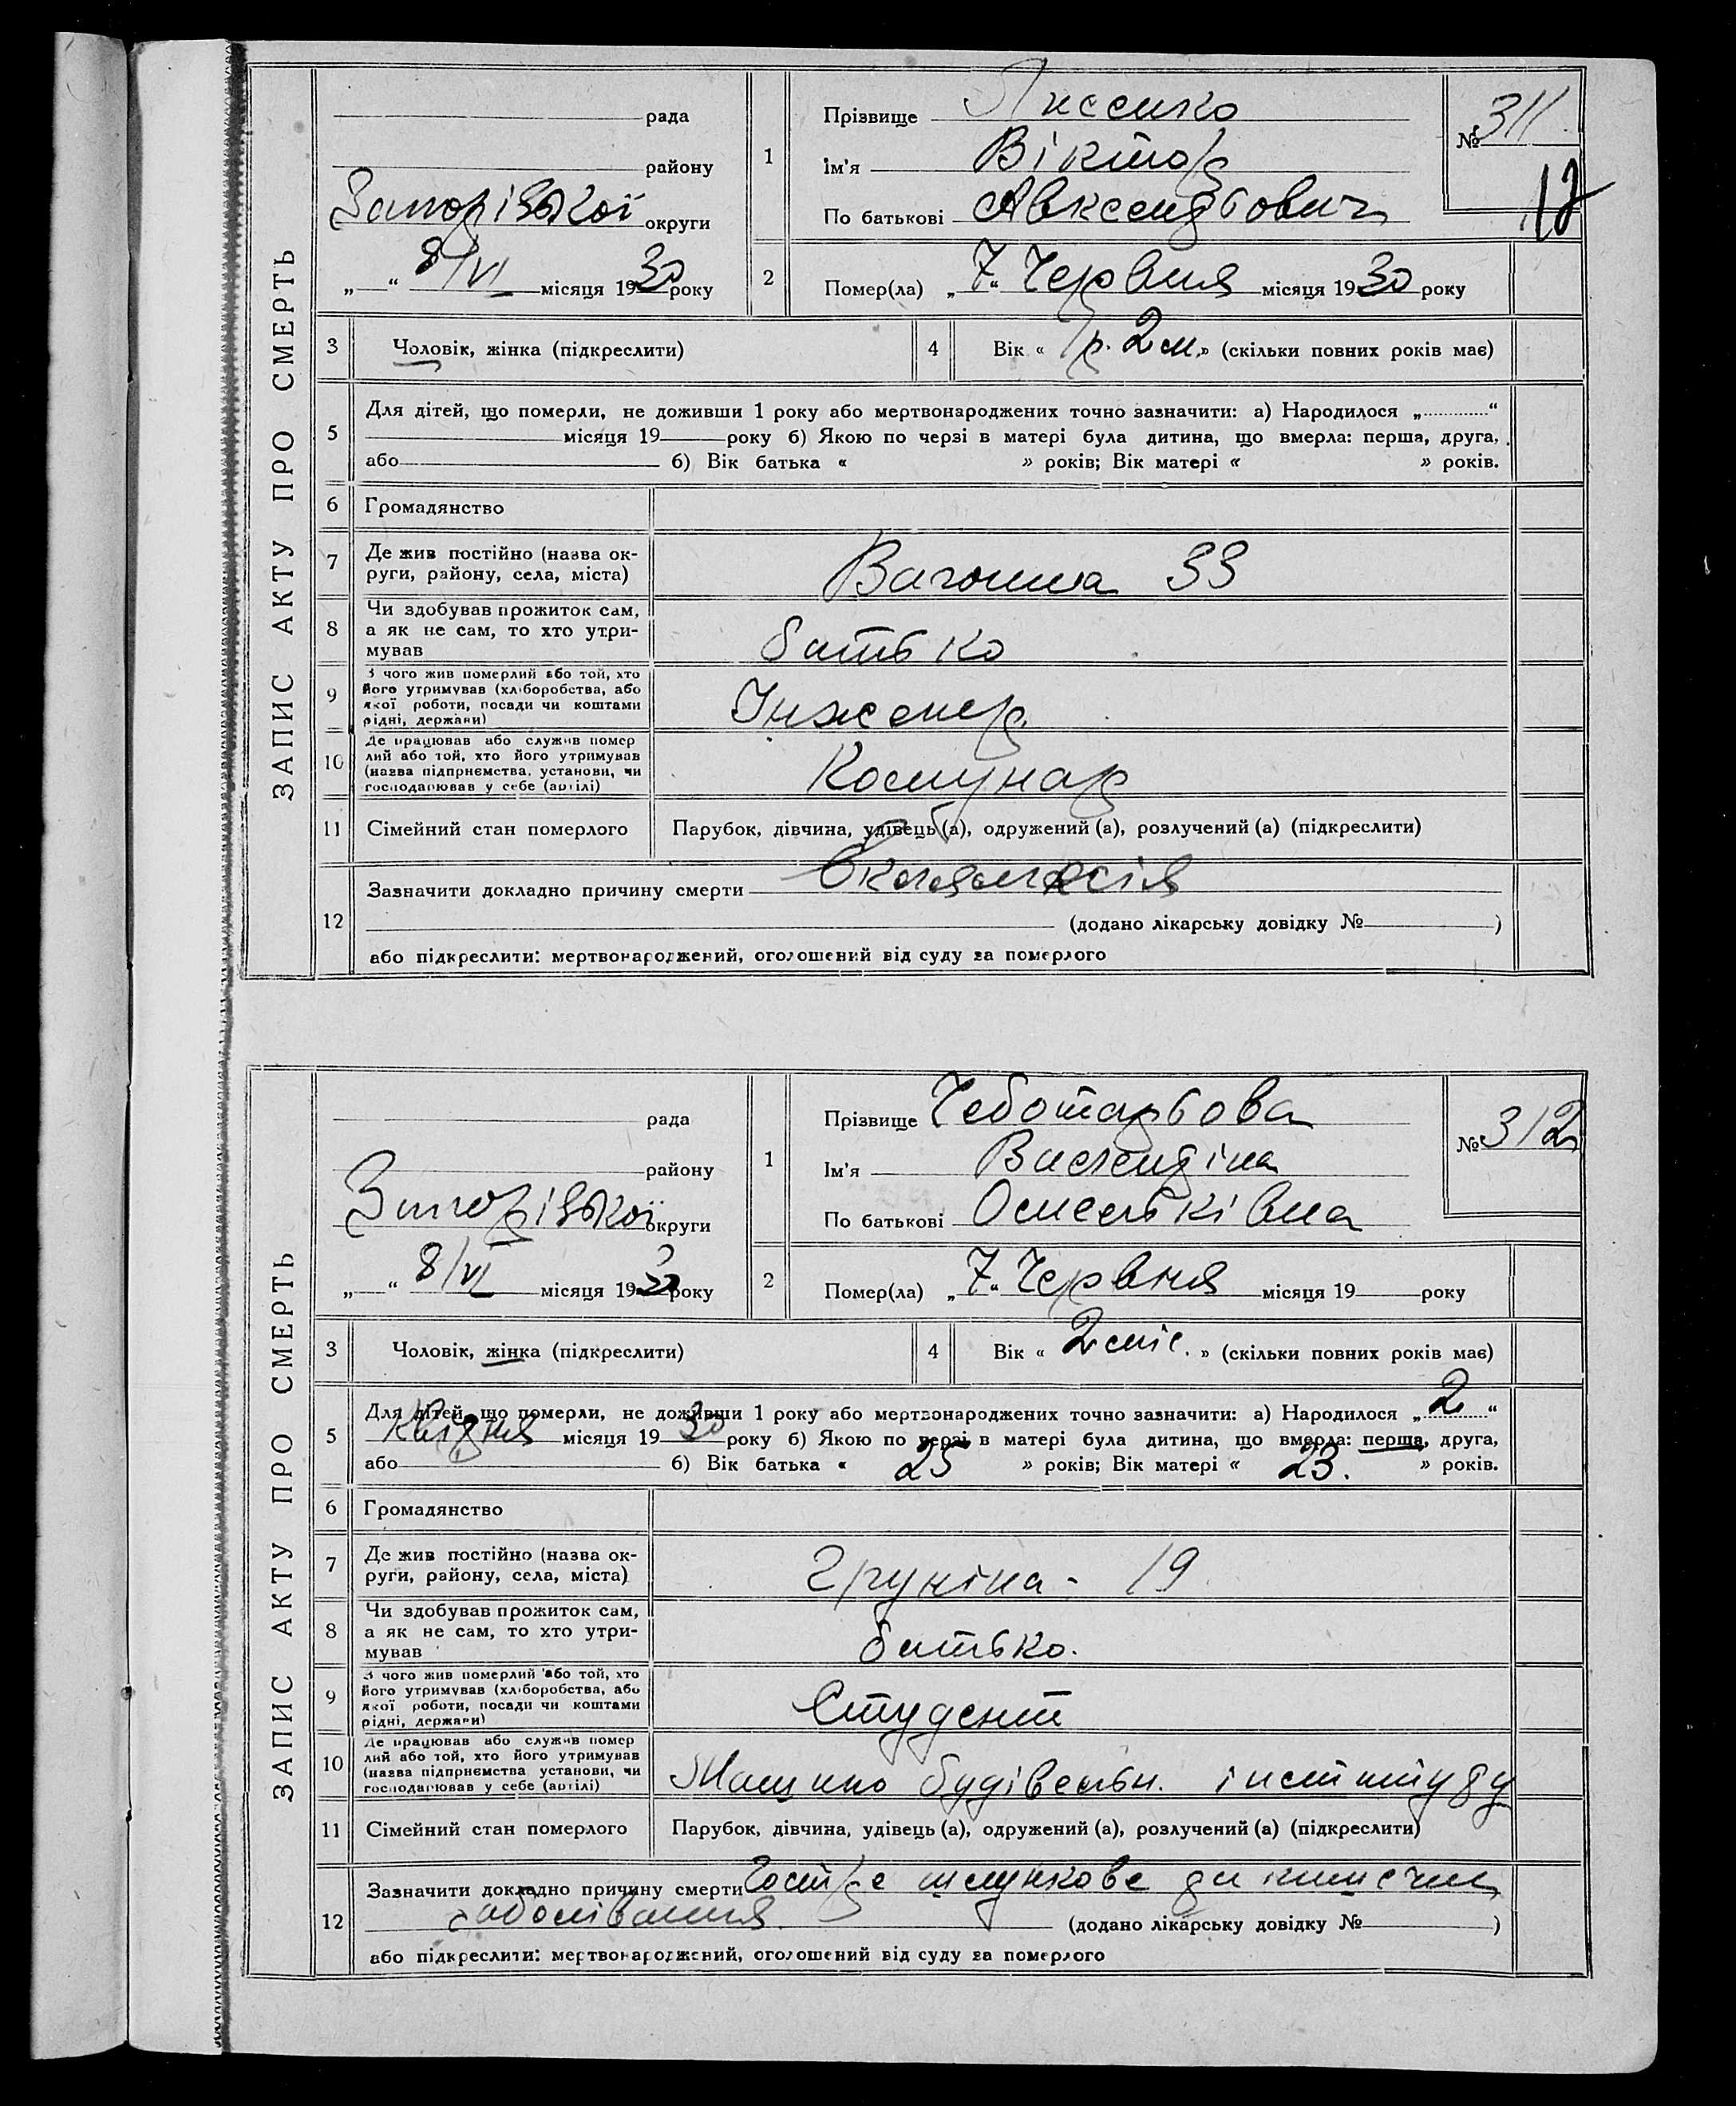 ЗАПИС АКТУ ПРО СМЕРТЬ
рада
району
Запорізької округи
„ “ 8/VI місяця 1930 року
1
Прізвище Лисенко
Ім'я Віктор
По батькові Авксентьович
№ 311
12
2
Помер(ла) „7“ Червня місяця 1930 року
3 Чоловік, жінка (підкреслити)
4 Вік « 1 р. 2 м. » (скільки повних років має)
5 Для дітей, що померли, не доживши 1 року або мертвонароджених точно зазначити: а) Народилося „ “
місяця 19 року б) Якою по черзі в матері була дитина, що вмерла: перша, друга,
або б) Вік батька « » років; Вік матері « » років.
6 Громадянство
7 Де жив постійно (назва ок-
руги, району, села, міста)
33
8 Чи здобував прожиток сам,
а як не сам, то хто утри-
мував
батько
9 З чого жив померлий або той, хто
його утримував (хліборобства, або
якої роботи, посади чи коштами
рідні, держави)
Інженер
10 Де працював або служив помер
лий або той, хто його утримував
(назва підприємства, установи, чи
господарював у себе (артілі)
Комунар
11 Сімейний стан померлого
Парубок, дівчина, удівець (а), одружений (а), розлучений (а) (підкреслити)
12 Зазначити докладно причину смерти
(додано лікарську довідку № )
або підкреслити: мертвонароджений, оголошений від суду за померлого
ЗАПИС АКТУ ПРО СМЕРТЬ
рада
району
Запорізької округи
„ “ 8/VI місяця 1930 року
1
Прізвище Чеботарьова
Ім'я Валентіна
По батькові Омельківна
№ 312
2
Помер(ла) „7“ Червня місяця 19 року
3 Чоловік, жінка (підкреслити)
4 Вік « 2 міс. » (скільки повних років має)
5 Для дітей, що померли, не доживши 1 року або мертвонароджених точно зазначити: а) Народилося „2“
Квітня місяця 1930 року б) Якою по черзі в матері була дитина, що вмерла: перша, друга,
або б) Вік батька « 25 » років; Вік матері « 23. » років.
6 Громадянство
7 Де жив постійно (назва ок-
руги, району, села, міста)
Груніна - 19
8 Чи здобував прожиток сам,
а як не сам, то хто утри-
мував
батько.
9 З чого жив померлий або той, хто
його утримував (хліборобства, або
якої роботи, посади чи коштами
рідні, держави)
Студент
10 Де працював або служив помер
лий або той, хто його утримував
(назва підприємства, установи, чи
господарював у себе (артілі)
Машино будівельн. інституту
11 Сімейний стан померлого
Парубок, дівчина, удівець (а), одружений (а), розлучений (а) (підкреслити)
12 Зазначити докладно причину смерти Гостре шлункове
(додано лікарську довідку № )
або підкреслити: мертвонароджений, оголошений від суду за померлого